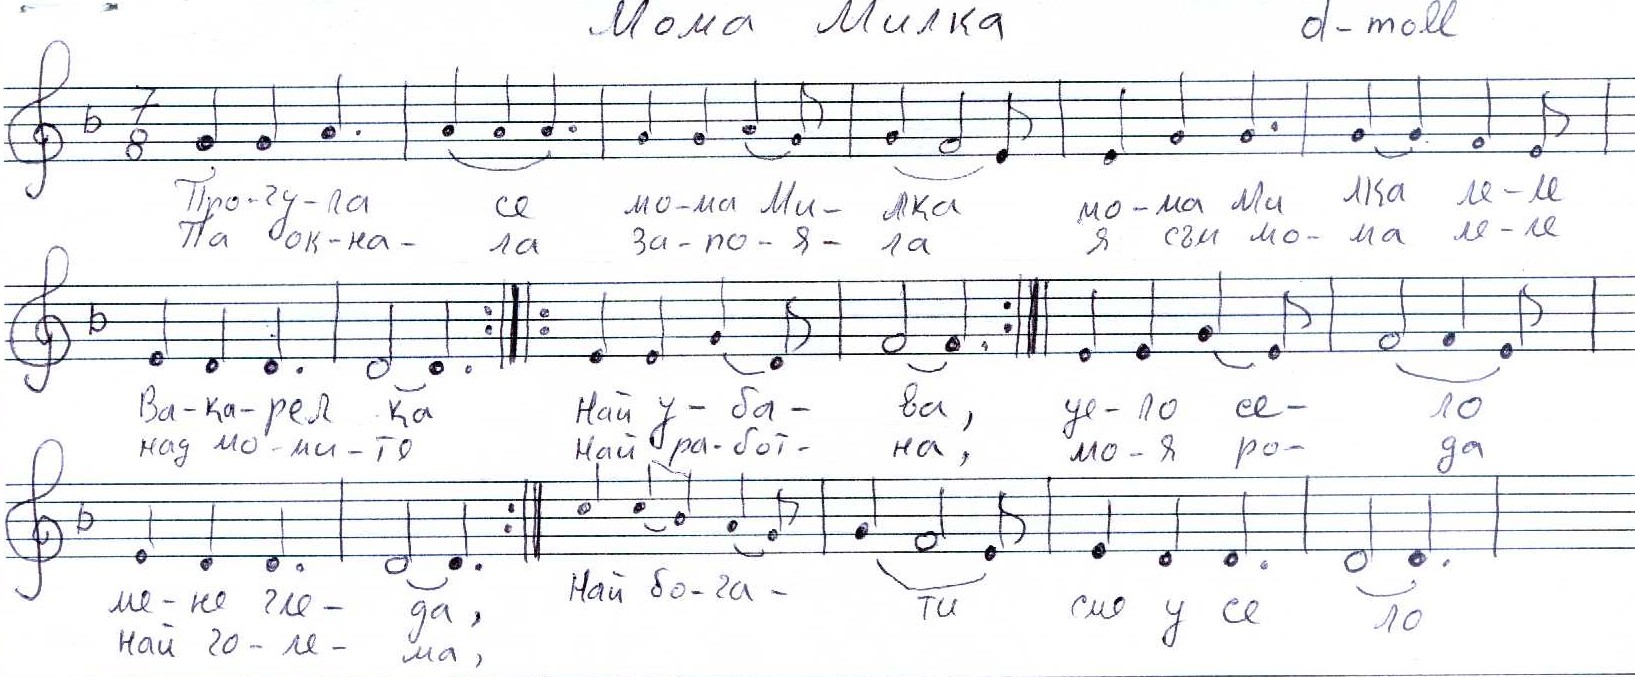 Мома Милка d-moll
7
8
Про-чу-ла се мо-ма Ми- лка мо-ма Ми лка ле-ле
Па ок-на- ла за-по-я- ла я съм мо- ма ле-ле
Ва-ка-рел ка Най у-ба- ва, це-ло се- ло
над мо-ми-те Най ра-бот- на, мо-я ро- да
ме-не гле- да, Най бо-га- ти сме у се ло
Най го-ле- ма,